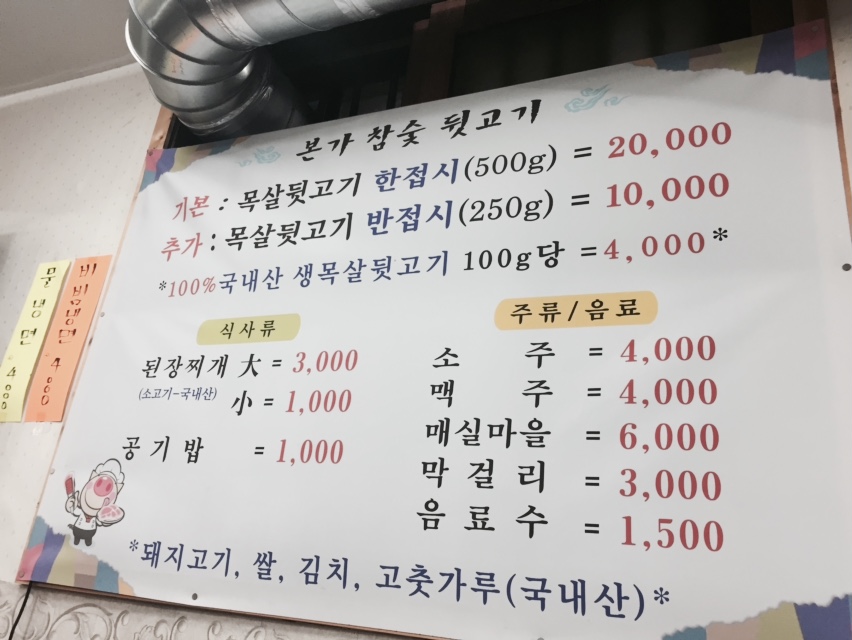 본가 참숯 뒷고기
기본 : 목살뒷고기 한접시(500g) = 20,000
추가 : 목살뒷고기 반접시(250g) = 10,000
*100%국내산 생목살뒷고기 100g당 =4,000*
식사류
된장찌개 大 = 3,000
(소고기-국내산) 小 = 1,000
공기밥 = 1,000
주류/음료
소주 = 4,000
맥주 = 4,000
매실마을 = 6,000
막걸리 = 3,000
음료수 = 1,500
*돼지고기, 쌀, 김치, 고춧가루(국내산)*
물냉면 4000
비빔냉면 4000